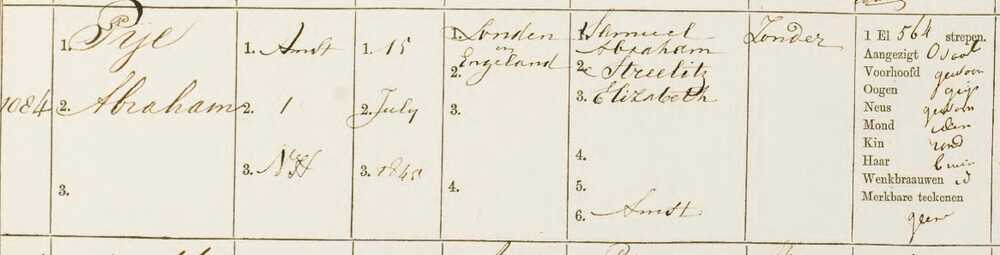 1084
1. Pije
2. Abraham
3.
1. Amst
2. 1
3. NH
1. 15
2. July
3. 1840
1. Londen
in
2. Engeland
3.
4.
1. Samuel
Abraham
2. Streelitz
3. Elizabeth
4.
5.
6. Amst
Zonder
1 El 564 strepen.
Aangezigt Ovaal
Voorhoofd gewoon
Oogen grijs
Neus gewoon
Mond idem
Kin rond
Haar bruin
Wenkbraauwen id
Merkbare teekenen
geen